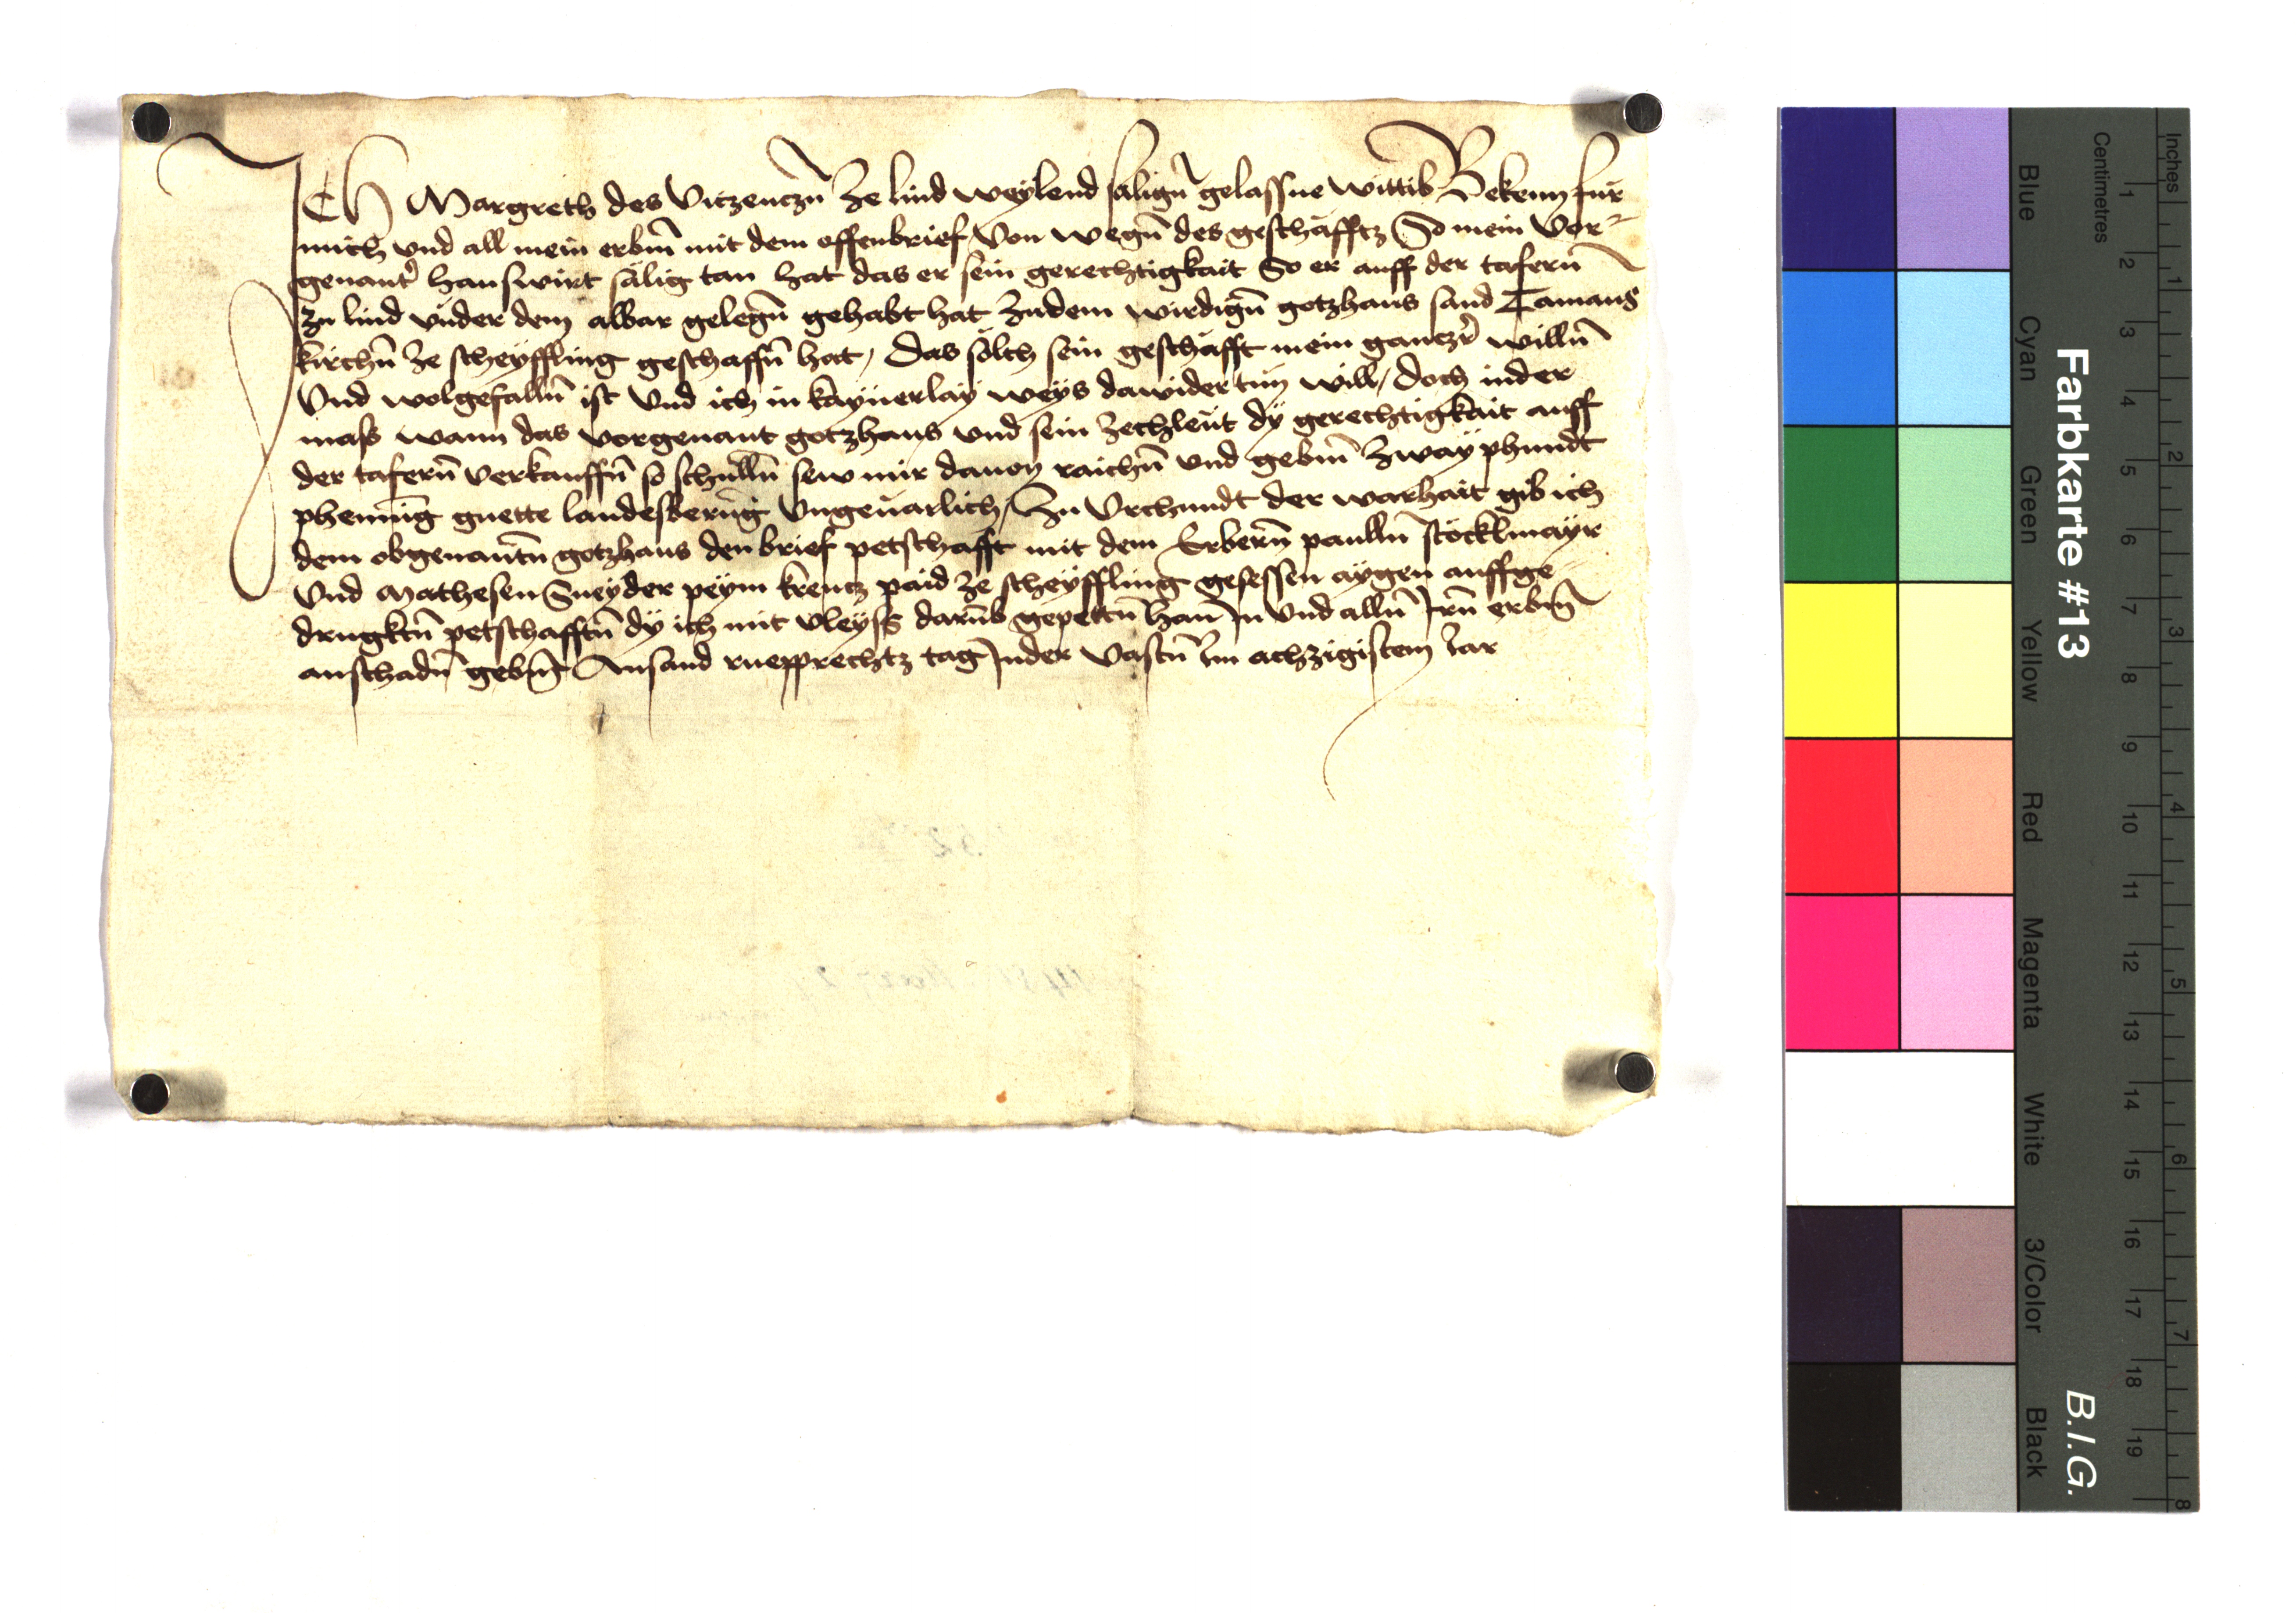 Ich Margreth des Vitzenczn̄ ze lind weylend sälign̄ gelassne wittib Bekenn für
mich vnd all mein erbm̄ mit dem offenbrief Von wegn̄ des geschäfftz So mein vor-
genantr̄ hauswirt sälig tan hat das er sein gerechtigkait So er auff der tafern̄
zu lind vnder dem albar gelegn̄ gehabt hat zudem wirdign̄ gotzhaus sand Tamans
kirchn̄ ze scheyffling geschaffn̄ hat, das sölch sein geschäfft mein ganczr̄ willn̄
Vnd wolgefalln̄ ist Vnd ich in kaynerlay weys dawider tun will, doch inder
mass wann das vorgenant gotzhaus vnd sein zechleüt dy gerechtigkait auff
der tafern̄ verkauffn̄ so schülln̄ sew mir dauon raichn̄ vnd gebm̄ zway phundt
phennīg guette landeswerūg Vngeuarlich, Zu Vrchundt der warhait gib ich
dem obgenantn̄ gotzhaus den brief petschafft mit dem Erbern̄ paulln̄ stöcklmayr
Vnd Mathesen Sneyder peym krewcz paid ze scheyffling gesessen aygen auffge-
drugktn̄ petschafftn̄ dy ich mit vleyss darūb gepettn̄ han̄ In vnd alln̄ Irn̄ erbm̄
anschadn̄ gebm̄ Ansand ruepprechtz tag Inder Vastn̄ Im achzigistem Iar
Farbkarte #13
B.I.G.
Inches
1 2 3 4 5 6 7 8
Centimetres
1 2 3 4 5 6 7 8 9 10 11 12 13 14 15 16 17 18 19
Blue Cyan Green Yellow Red Magenta White 3/Color Black